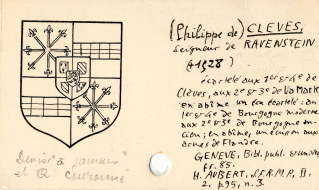 (Philippe de) CLEVES,
Seigneur de RAVENSTEIN
(†1528)
écartelé aux 1er et 4e de
Clèves, aux 2e et 3e de La Mark
en abîme un écu écartelé: au
1er et 4e de Bourgogne moderne
aux 2e et 3e de Bourgogne an-
cien; en abîme, un écusson aux
armes de Flandre.
GENEVE, Bibl. publ. et univ.
fr. 85.
H. AUBERT, S.F.R.M.P., II,
2, p95, n. 3.
Devise "à jamais"
et Couronne